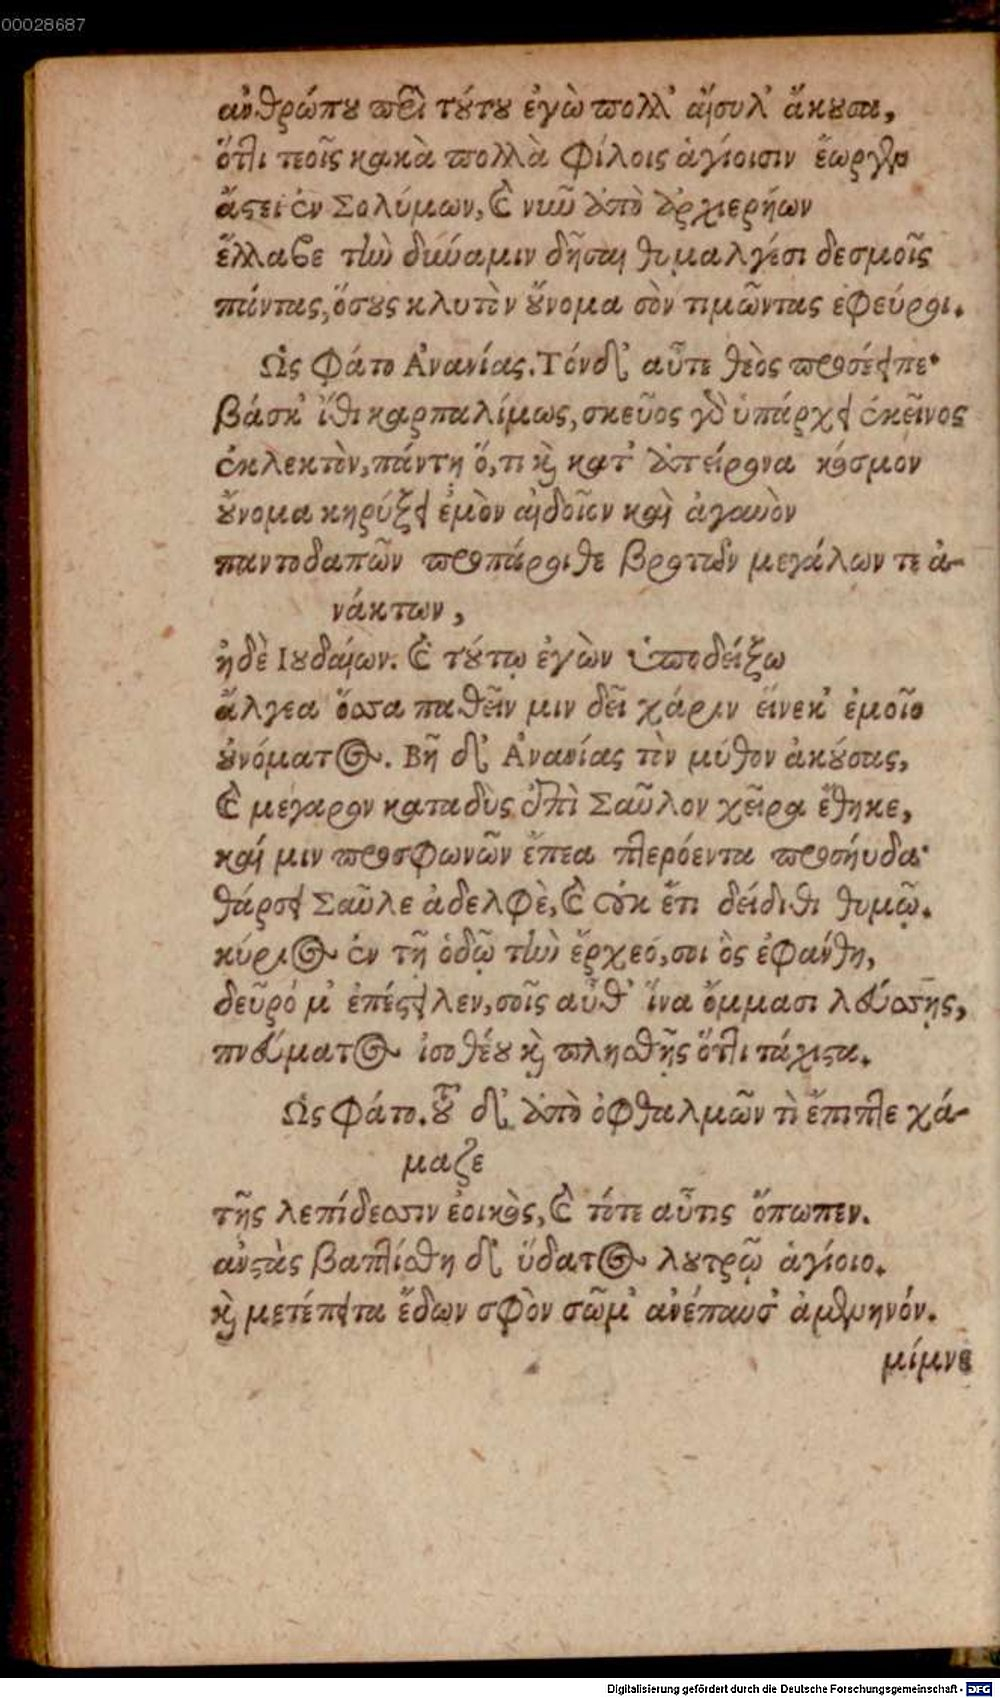 00028687
ἀνθρώπου περὶ τούτου ἐγὼ πολλ' αἴσυλ' ἄκουσα,
ὅττι τεοῖς κακὰ πολλὰ φίλοις ἁγίοισιν ἔωργεν
ἄστει ἐν Σολύμων, καὶ νῦν ἀπὸ ἀρχιερήων
ἔλλαβε τὴν δύναμιν δῆσαι θυμαλγέσι δεσμοῖς
πάντας, ὅσους κλυτὸν οὔνομα σὸν τιμῶντας ἐφεύροι.
Ὣς φάτο Ἀνανίας. Τόνδ' αὖτε θεὸς προσέειπε·
βάσκ' ἴθι καρπαλίμως, σκεῦος γὰρ ὑπάρχει ἐκεῖνος
ἐκλεκτὸν, πάντη ὅ, τι καὶ κατ' ἀπείρονα κόσμον
οὔνομα κηρύξει ἐμὸν αἰδοῖον καὶ ἀγαυὸν
παντοδαπῶν προπάροιθε βροτῶν μεγάλων τε ἀ-
νάκτων,
ἠδὲ Ιουδαίων. καὶ τούτῳ ἐγὼν ὑποδείξω
ἄλγεα ὅσσα παθεῖν μιν δεῖ χάριν εἵνεκ' ἐμοῖο
οὐνόματος. Βῆ δ' Ἀνανίας τὸν μύθον ἀκούσας,
καὶ μέγαρον καταδὺς ἐπὶ Σαῦλον χεῖρα ἔθηκε,
καί μιν προσφωνῶν ἔπεα πτερόεντα προσηύδα·
θάρσει Σαῦλε ἀδελφὲ, καὶ οὐκ ἔτι δείδιθι θυμῷ.
κύριος ἐν τῇ ὁδῷ τὴν ἔρχεό, σοι ὃς ἐφάνθη,
δεῦρό μ' ἐπέστειλεν, σοῖς αὖθ' ἵνα ὄμμασι λεύσσῃς,
πνεύματος ἰσοθέου καὶ πλησθῇς ὅττι τάχιστα.
Ὣς φάτο. τοῦ δ' ἀπὸ ὀφθαλμῶν τὶ ἔπιπτε χά-
μαζε
τῆς λεπίδεσσιν ἐοικὸς, καὶ τότε αὖτις ὄπωπεν.
ἀνστὰς βαπτίσθη δ' ὕδατος λουτρῷ ἁγίοιο.
καὶ μετέπειτα ἔδων σφὸν σῶμ' ἀνέπαυσ' ἀμενηνόν.
μίμνε
Digitalisierung gefördert durch die Deutsche Forschungsgemeinschaft - DFG